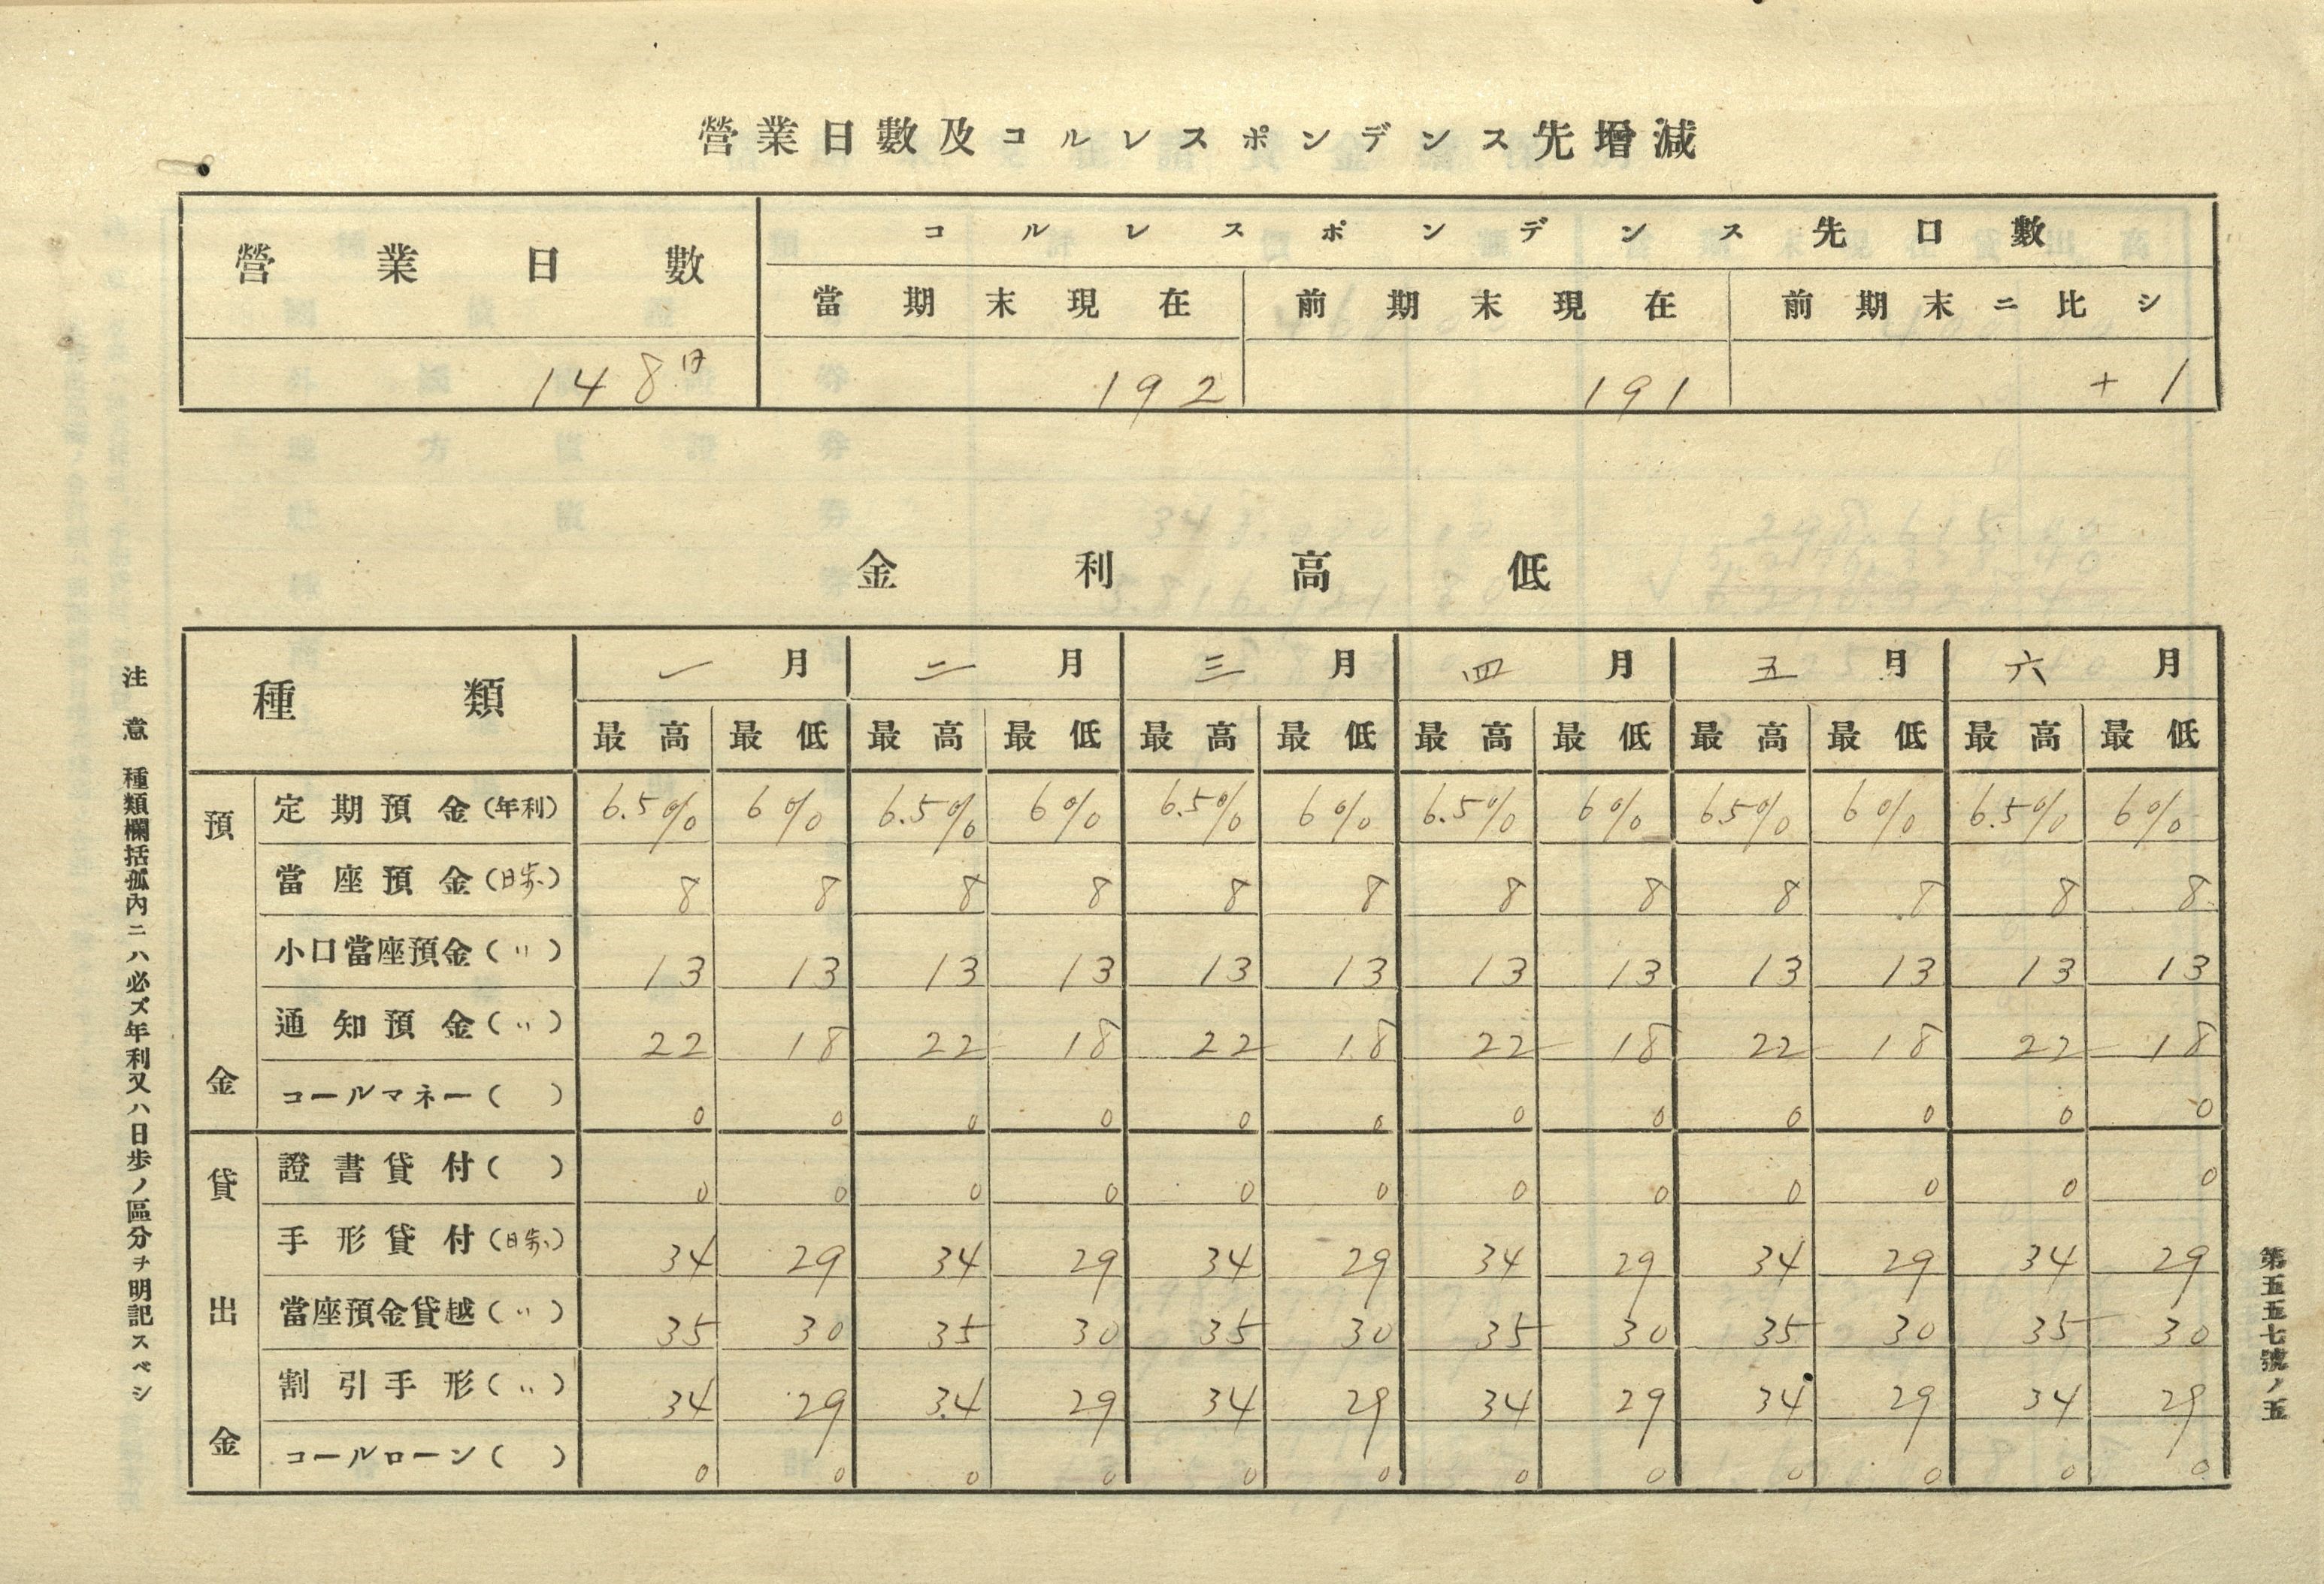 營業日數及コルレスポンデンス先增減
營業日數 コルレスポンデンス先口數
當期末現在 前期末現在 前期末ニ比シ
148日 192 191 +1
金利高低
種類 一月 二月 三月 四月 五月 六月
最高 最低 最高 最低 最高 最低 最高 最低 最高 最低 最高 最低
預金
定期預金(年利) 6.5% 6% 6.5% 6% 6.5% 6% 6.5% 6% 6.5% 6% 6.5% 6%
當座預金(日歩) 8 8 8 8 8 8 8 8 8 8 8 8
小口當座預金(〃) 13 13 13 13 13 13 13 13 13 13 13 13
通知預金(〃) 22 18 22 18 22 18 22 18 22 18 22 18
コールマネー( ) 0 0 0 0 0 0 0 0 0 0 0 0
貸出金
證書貸付( ) 0 0 0 0 0 0 0 0 0 0 0 0
手形貸付(日歩) 34 29 34 29 34 29 34 29 34 29 34 29
當座預金貸越(〃) 35 30 35 30 35 30 35 30 35 30 35 30
割引手形(〃) 34 29 34 29 34 29 34 29 34 29 34 29
コールローン( ) 0 0 0 0 0 0 0 0 0 0 0 0
注意 種類欄括孤內ニハ必ズ年利又ハ日歩ノ區分ヲ明記スベシ
第五五七號ノ五